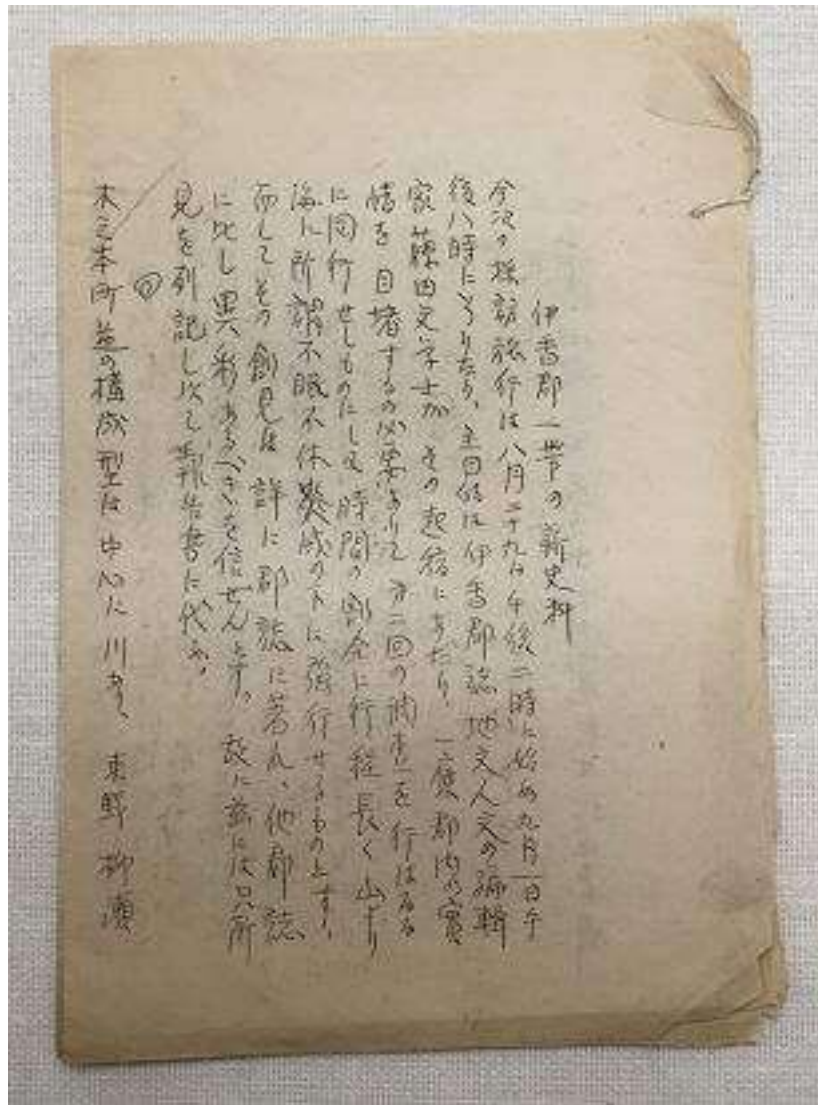 伊香郡一帯の新史料
今次の採訪旅行は八月二十九日午後二時に始め九月一日午
後八時に了りたり、主目的は伊香郡誌地文人文の編輯
家藤田文学士が その起稿にあたり、一応郡内の実
情を目堵するの必要あり 第二回の調査を行はるる
に同行せしものにして 時間の割合に行程長く山あり
海に所謂不眠不休 の下に強行せるものとす、
而してその創見は詳に郡誌に著れ、他郡誌
に比し異彩あるべきを信ぜんとす。故に茲には只所
見を列記し以て報告書に代ふ。
木之本町並の構成型は中心に川あり、東野 柳瀬